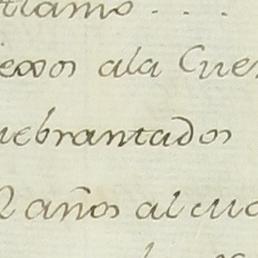 tlamo . . .
exos ala Cue
uebrantados
años al cu